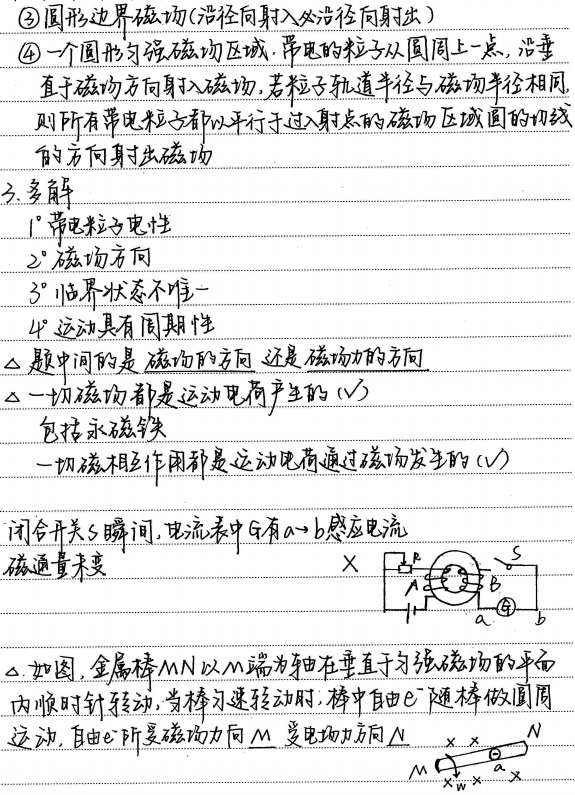 ③圆形边界磁场(沿径向射入必沿径向射出)
④一个圆形匀强磁场区域,带电的粒子从圆周上一点,沿垂
直于磁场方向射入磁场,若粒子轨道半径与磁场半径相同,
则所有带电粒子都以平行于过入射点的磁场区域圆的切线
的方向射出磁场
3.多解
1°带电粒子电性
2°磁场方向
3°临界状态不唯一
4°运动具有周期性
△题中问的是磁场的方向还是磁场力的方向
△一切磁场都是运动电荷产生的(√)
包括永磁铁
一切磁相互作用都是运动电荷通过磁场发生的(√)
闭合开关S瞬间,电流表中G有a→b感应电流
磁通量未变
×
R S
A B
G
a b
△如图,金属棒MN以M端为轴在垂直于匀强磁场的平面
内顺时针转动,当棒匀速转动时,棒中自由e⁻随棒做圆周
运动,自由e⁻所受磁场力向M 受电场力方向N
× × N
M a
×w × ×